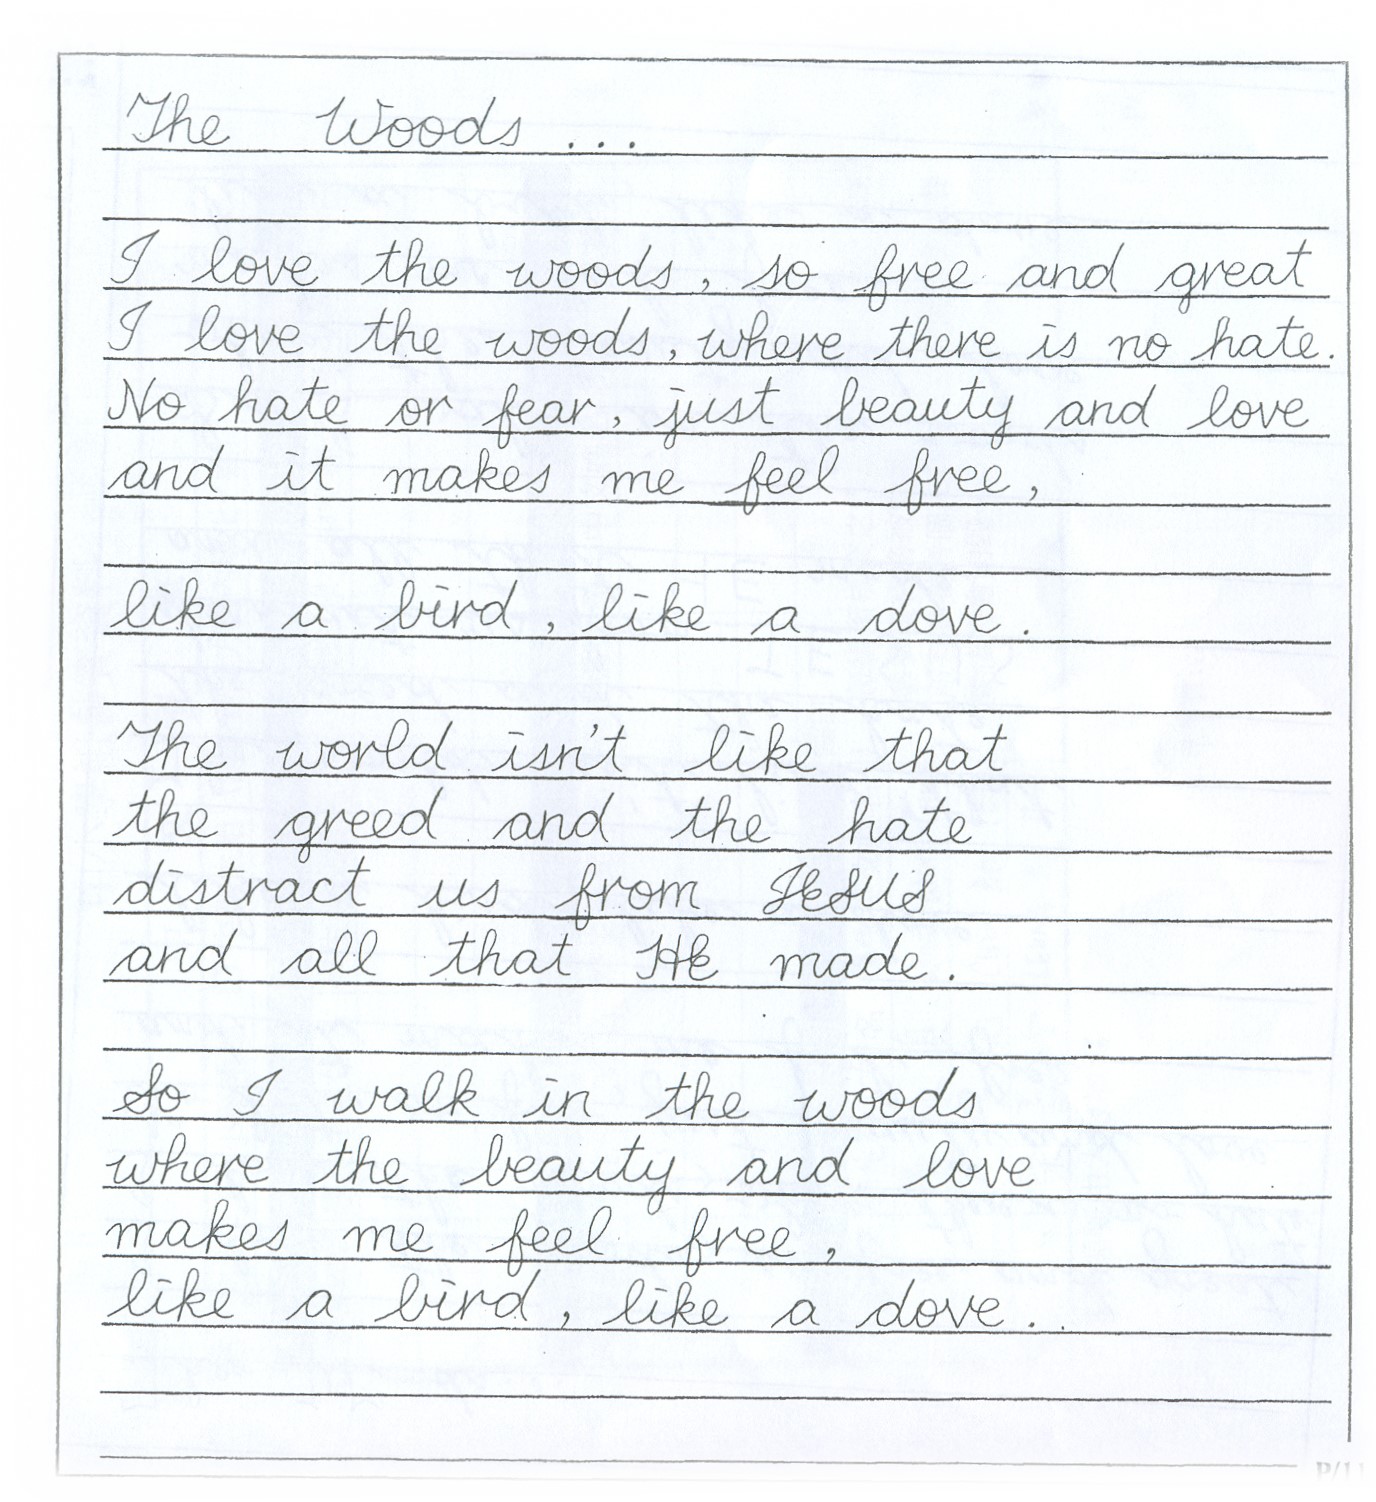 The Woods ...
I love the woods, so free and great
I love the woods, where there is no hate.
No hate or fear, just beauty and love
and it makes me feel free,
like a bird, like a dove.
The world isn't like that
the greed and the hate
distract us from JESUS
and all that HE made.
So I walk in the woods
where the beauty and love
makes me feel free,
like a bird, like a dove..